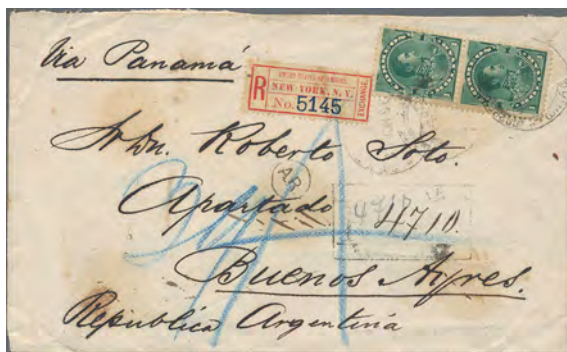 Via Panamá
UNITED STATES OF AMERICA.
R NEW YORK, N.Y. EXCHANGE
No. 5145
Sr Dn. Roberto Soto.
AR
Apartado
4710
4710.
Buenos Ayres.
República Argentina